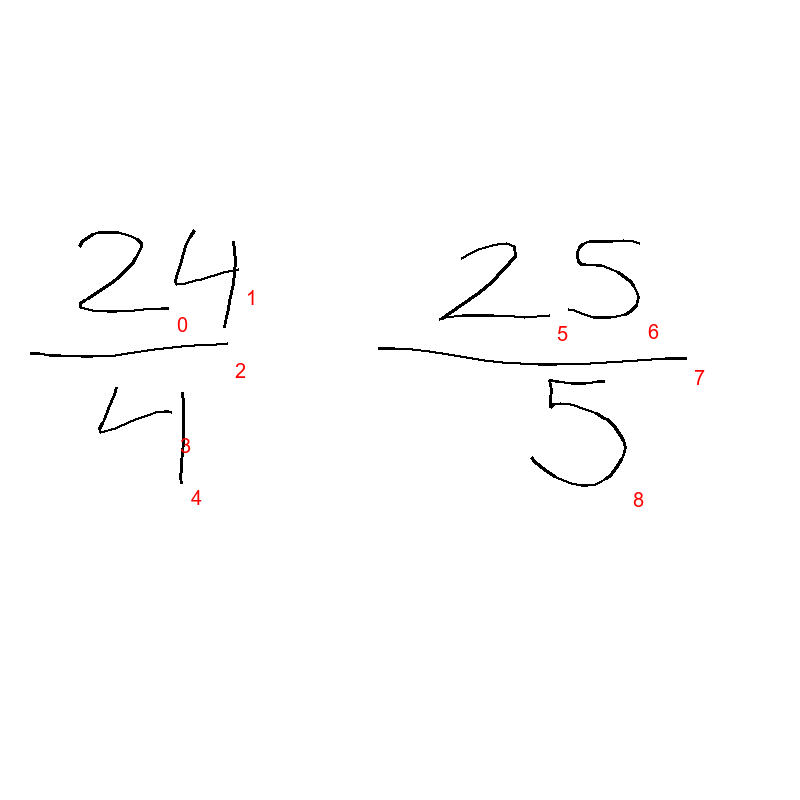 24 25
4 5
0 1 2 3 4 5 6 7 8